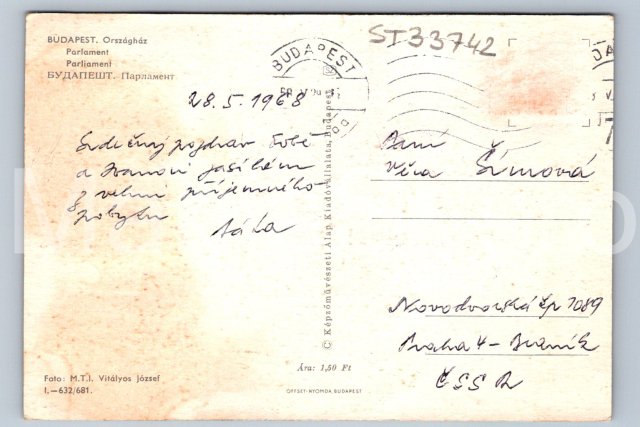 BUDAPEST. Országház
Parlament
Parliament
БУДАПЕШТ. Парламент
BUDAPEST
ST33742
28.5.1968
Srdečný pozdrav Tobě
a Ivanovi zasílám
z velmi příjemného
pobytu
Paní
Věra Šímová
Novodvorská čp 1089
Praha 4 - Braník
ČSSR
© Képzőművészeti Alap Kiadóvállalata, Budapest
Ára: 1,50 Ft
Foto: M.T.I. Vitályos József
I.—632/681.
OFFSET-NYOMDA, BUDAPEST